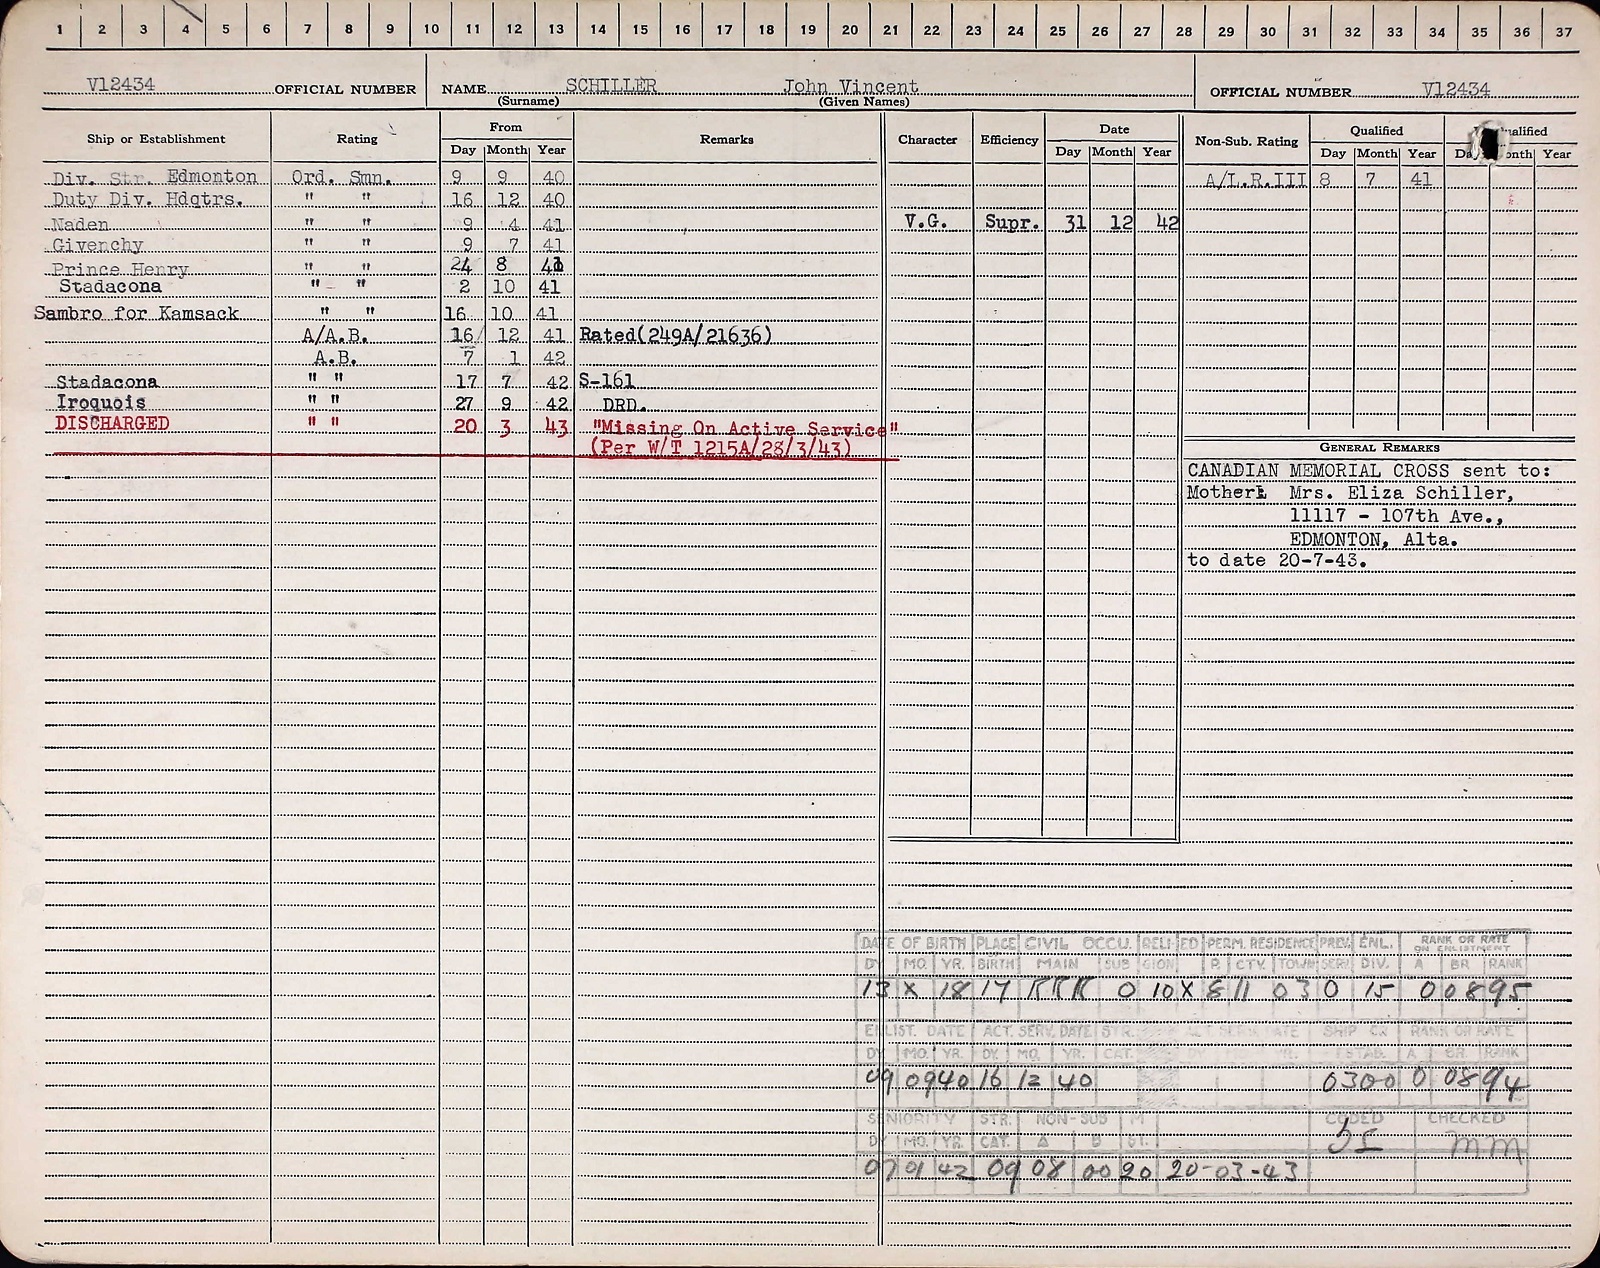 1 2 3 4 5 6 7 8 9 10 11 12 13 14 15 16 17 18 19 20 21 22 23 24 25 26 27 28 29 30 31 32 33 34 35 36 37
V12434 OFFICIAL NUMBER NAME SCHILLER John Vincent OFFICIAL NUMBER V12434
(Surname) (Given Names)
Ship or Establishment Rating From Remarks Character Efficiency Date Non-Sub. Rating Qualified
Day Month Year Day Month Year Day Month Year Year
Div. Str. Edmonton Ord. Smn. 9 9 40 A/L.R.III 8 7 41
Duty Div. Hdqtrs. " " 16 12 40
Naden " " 9 4 41 V.G. Supr. 31 12 42
Givenchy " " 9 7 41
Prince Henry " " 24 8 41
Stadacona " " 2 10 41
Sambro for Kamsack " " 16 10 41
A/A.B. 16 12 41 Rated(249A/21636)
A.B. 7 1 42
Stadacona " " 17 7 42 S-161
Iroquois " " 27 9 42 DRD.
DISCHARGED " " 20 3 43 "Missing On Active Service"
(Per W/T 1215A/28/3/43)
GENERAL REMARKS
CANADIAN MEMORIAL CROSS sent to:
Mother: Mrs. Eliza Schiller,
11117 - 107th Ave.,
EDMONTON, Alta.
to date 20-7-43.
DATE OF BIRTH PLACE CIVIL OCCU. RELI ED PERM. RESIDENCE PREV. ENL. RANK OR RATE
ON ENLISTMENT
DY MO. YR. BIRTH MAIN SUB GION P. CTY. TOWN SERV DIV. A BR. RANK
13 X 18 17 KKK 0 10 X 8 11 03 0 15 0 08 95
ENLIST. DATE ACT. SERV. DATE STR. SHIP OR RANK OR RATE
DY MO. YR. DY. MO. YR. CAT. ESTAB. A BR. RANK
09 09 40 16 12 40 0300 0 08 94
SENIORITY STR. NON-SUB M CODED CHECKED
DY MO. YR. CAT. A B ST. mm
07 01 42 09 08 00 20 20-03-43